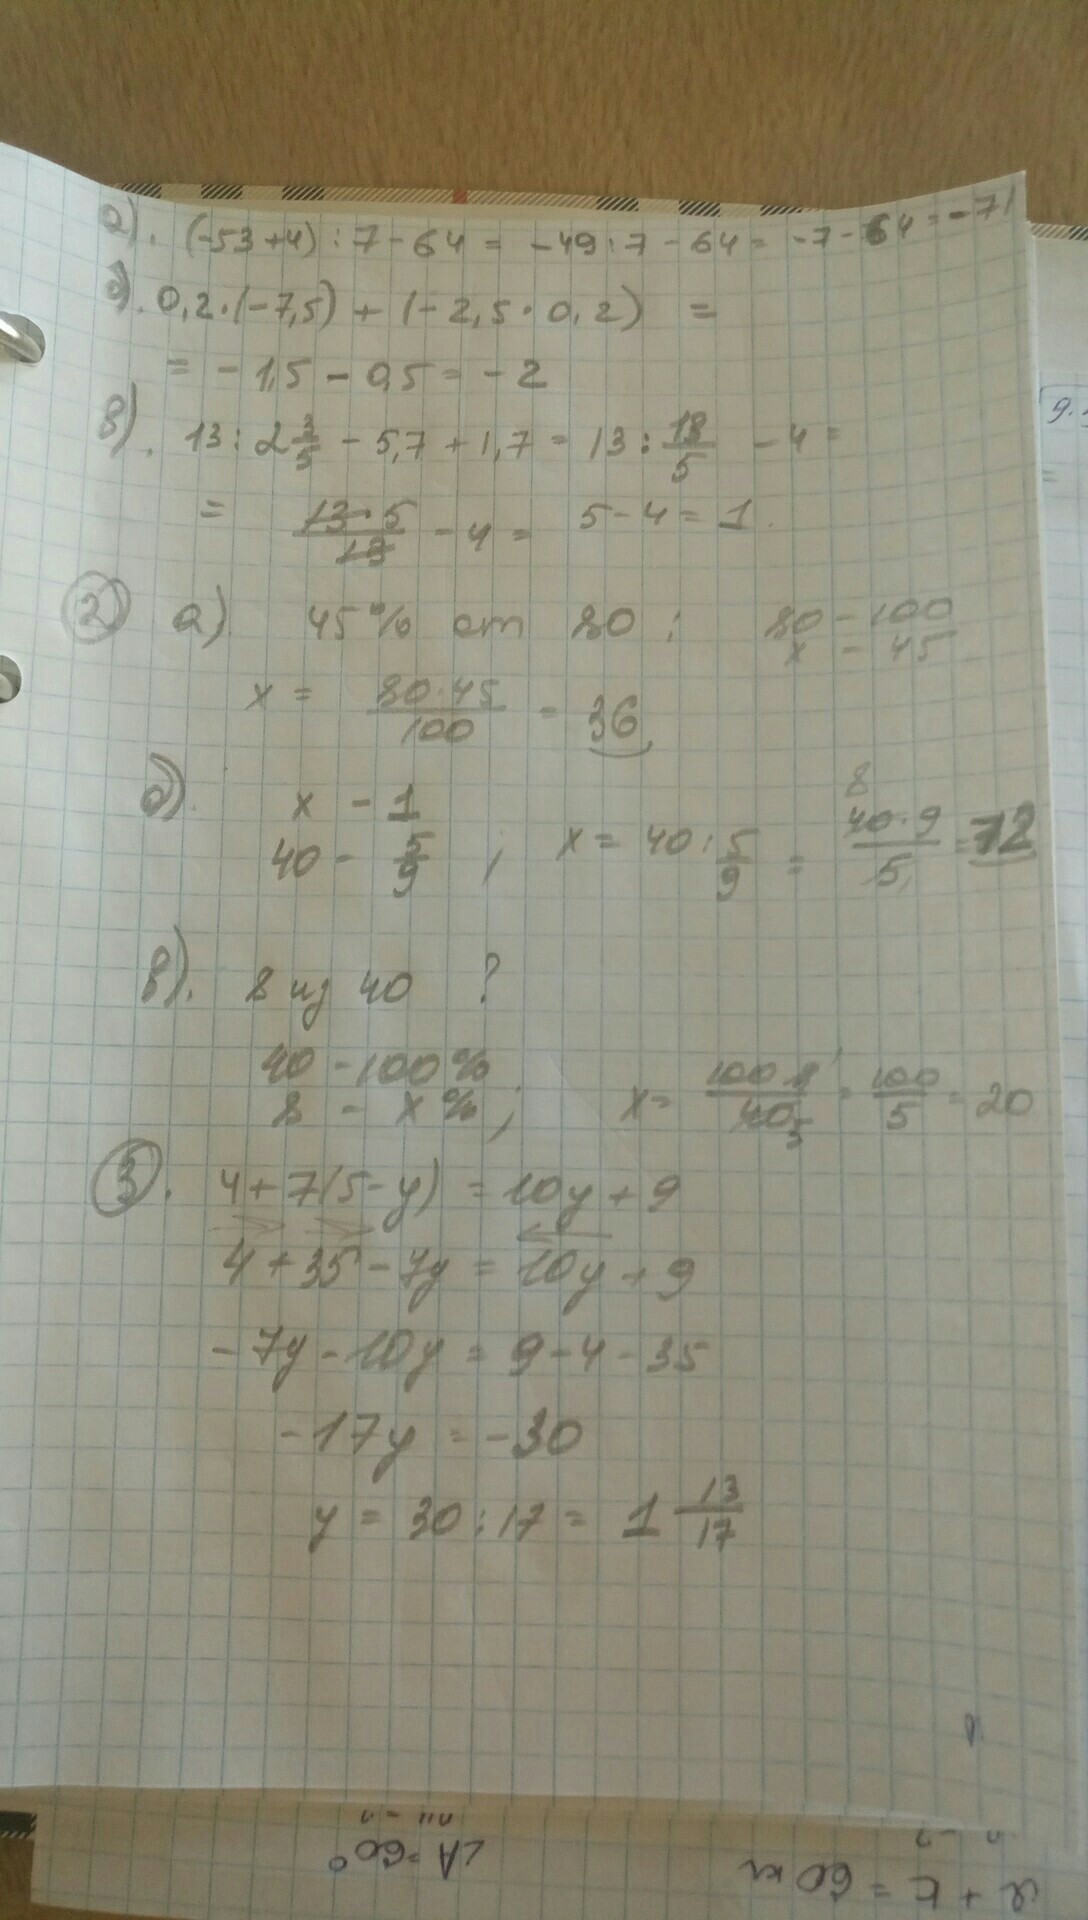 а). (-53+4):7-64 = -49:7-64= -7-64=-71
б). 0,2·(-7,5) + (-2,5·0,2) =
= -1,5-0,5=-2
в). 13:2 3/5 - 5,7+1,7 = 13: 13/5 - 4 =
= 13·5/13 - 4 = 5-4=1.
2) а) 45% от 80; 80-100
x - 45
x = 80·45/100 = 36
б). x - 1
40 - 5/9 ; x = 40: 5/9 = 40·9/5 = 72
8
в). 8 из 40 ?
40-100%
8 - x%; x= 100·8/40 = 100/5 = 20
1
5
3. 4+7(5-y) = 10y+9
4+35-7y = 10y+9
-7y-10y = 9-4-35
-17y = -30
y = 30:17 = 1 13/17
∠A=60°
9.
=